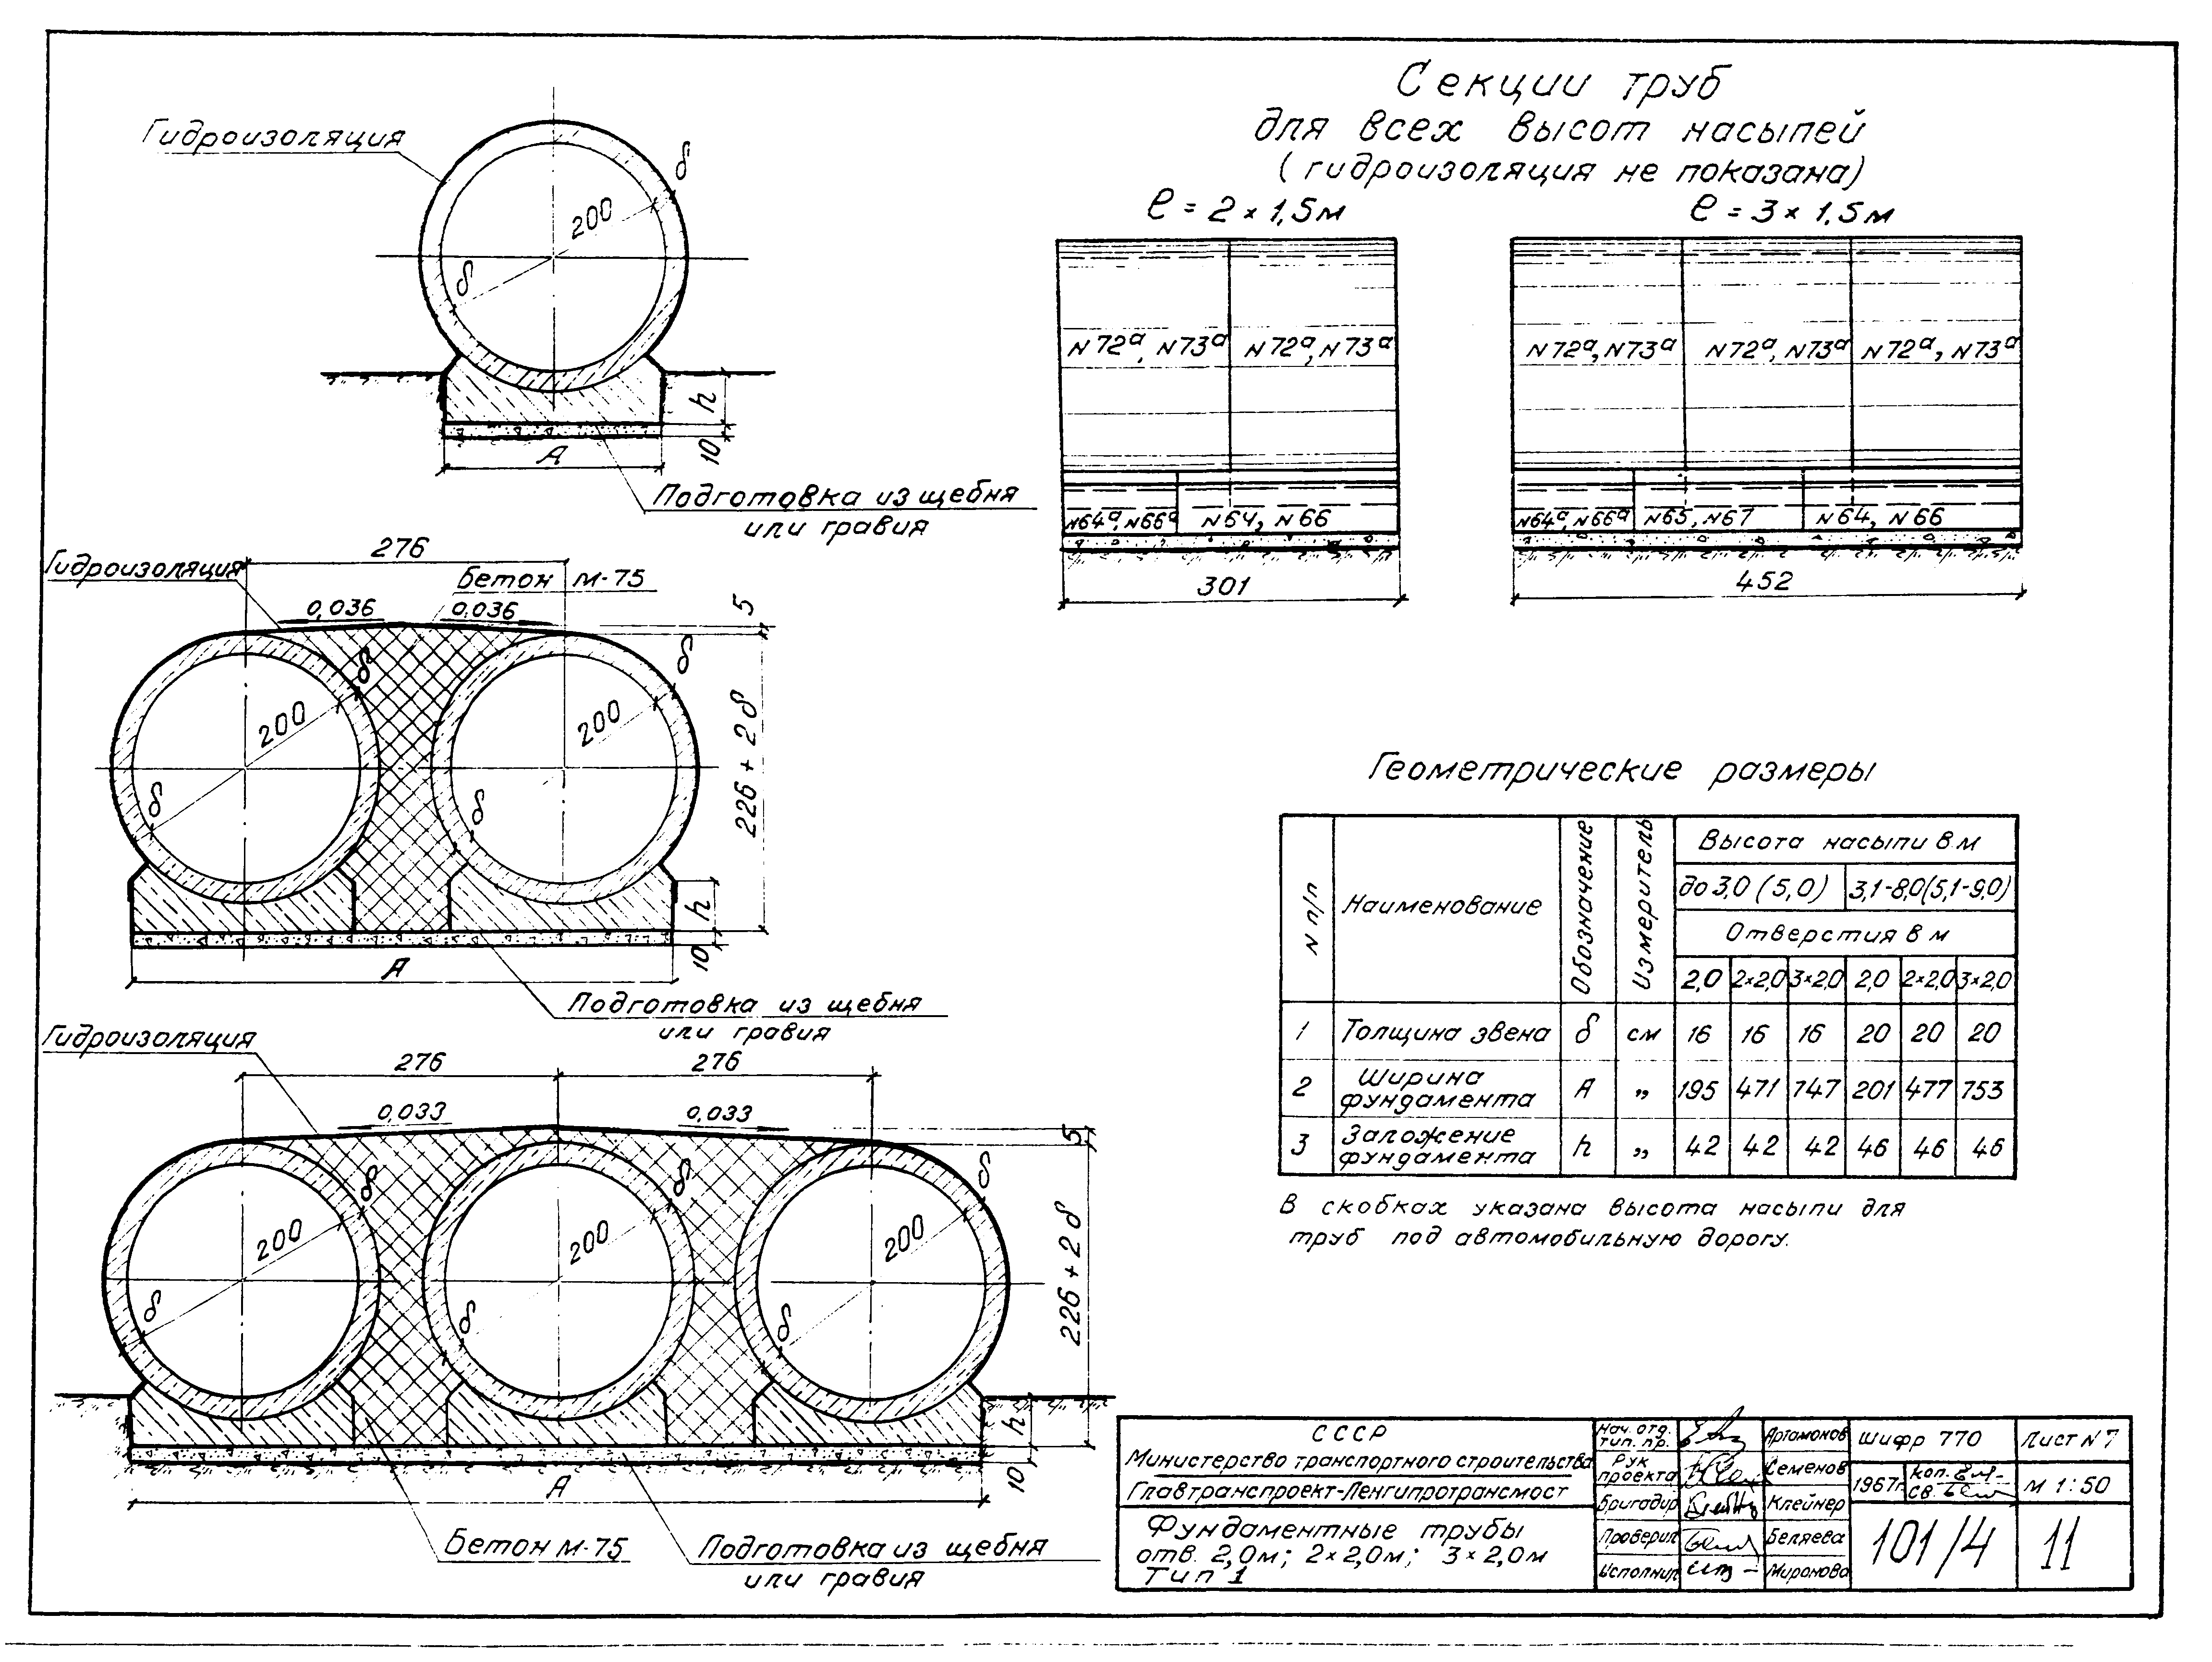 Секции труб
для всех высот насыпей
(гидроизоляция не показана)
ℓ = 2 × 1,5м
ℓ = 3 × 1,5м
N72а, N73а
N72а, N73а
N64а, N66а
N64, N66
301
N72а, N73а
N72а, N73а
N72а, N73а
N64а, N66а
N65, N67
N64, N66
452
Гидроизоляция
δ
200
δ
h
10
А
Подготовка из щебня
или гравия
Гидроизоляция
276
Бетон М-75
0,036
0,036
5
δ
δ
200
200
226 + 2δ
δ
δ
h
10
А
Подготовка из щебня
или гравия
Гидроизоляция
276
276
0,033
0,033
5
δ
δ
δ
200
200
200
226 + 2δ
δ
δ
δ
h
10
А
Бетон М-75
Подготовка из щебня
или гравия
Геометрические размеры
N п/п
Наименование
Обозначение
Измеритель
Высота насыпи в м
до 3,0 (5,0)
3,1-8,0(5,1-9,0)
Отверстия в м
2,0 2×2,0 3×2,0 2,0 2×2,0 3×2,0
1 Толщина звена δ см 16 16 16 20 20 20
2 Ширина фундамента А „ 195 471 747 201 477 753
3 Заложение фундамента h „ 42 42 42 46 46 46
В скобках указана высота насыпи для
труб под автомобильную дорогу.
СССР
Министерство транспортного строительства
Главтранспроект-Ленгипротрансмост
Фундаментные трубы
отв. 2,0м; 2×2,0м; 3×2,0м
Тип 1
Нач. отд. тип. пр. Артамонов
Рук проекта Семенов
Бригадир Клейнер
Проверил Беляева
Исполнил Миронова
Шифр 770
Лист N 7
1967г.
коп.
св.
М 1:50
101/4
11